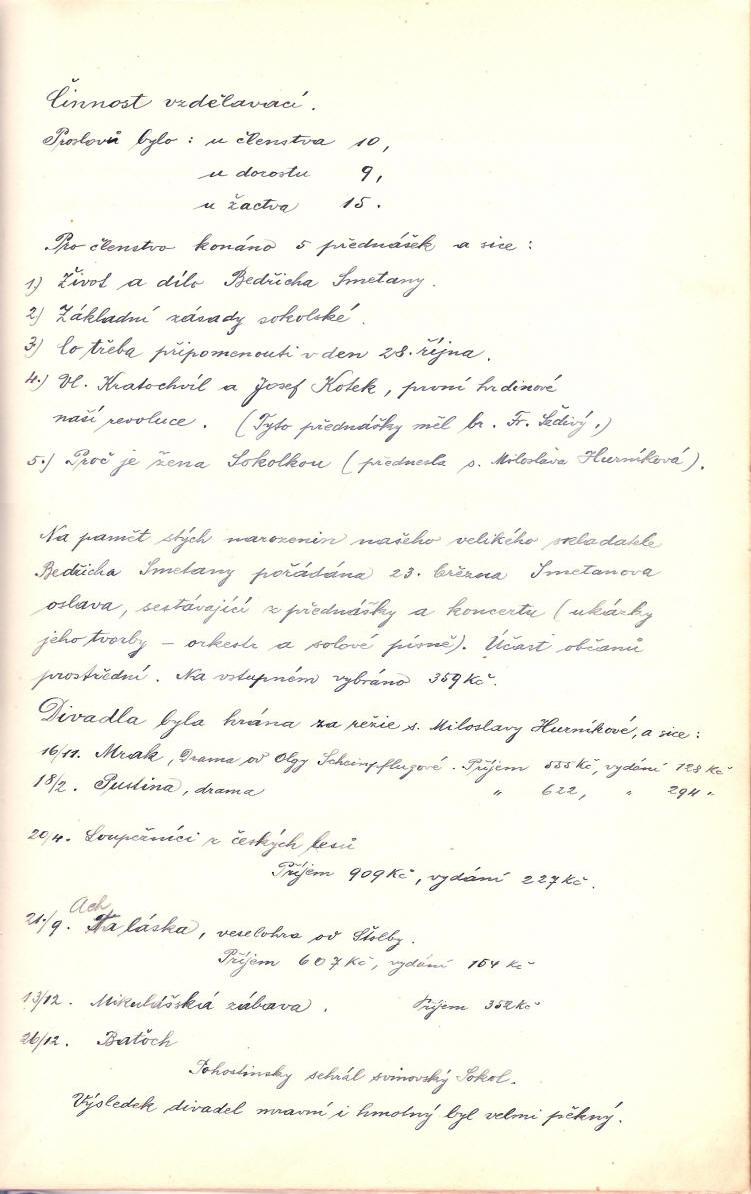 Činnost vzdělavací.
Proslovů bylo : u členstva 10,
u dorostu 9,
u žactva 15.
Pro členstvo konáno 5 přednášek a sice :
1.) Život a dílo Bedřicha Smetany.
2.) Základní zásady sokolské.
3.) Co třeba připomenouti v den 28. října.
4.) Vl. Kratochvíl a Josef Kotek, první hrdinové
naší revoluce. (Tyto přednášky měl br. Fr. .)
5.) Proč je žena Sokolkou (přednesla s. Miloslava Hurníková).
Na pamět stých narozenin našeho velikého skladatele
Bedřicha Smetany pořádána 23. března Smetanova
oslava, sestávající z přednášky a koncertu (ukázky
jeho tvorby – orkestr a solové písně). Účast občanů
prostřední. Na vstupném vybráno 359 Kč.
Divadla byla hrána za režie s. Miloslavy Hurníkové, a sice :
16/11. Mrak, Drama od Olgy Scheinpflugové. Příjem 555 Kč, vydání 128 Kč
18/2. Pustina, drama " 622, " 294 "
20/4. Loupežníci z českých lesů
Příjem 909 Kč, vydání 227 Kč.
Ach
21/9. ta láska, veselohra od Štolby.
Příjem 607 Kč, vydání 154 Kč
13/12. Mikulášská zábava. Příjem 352 Kč
26/12. Batoch
Pohostinsky sehrál svinovský Sokol.
Výsledek divadel mravní i hmotný byl velmi pěkný.